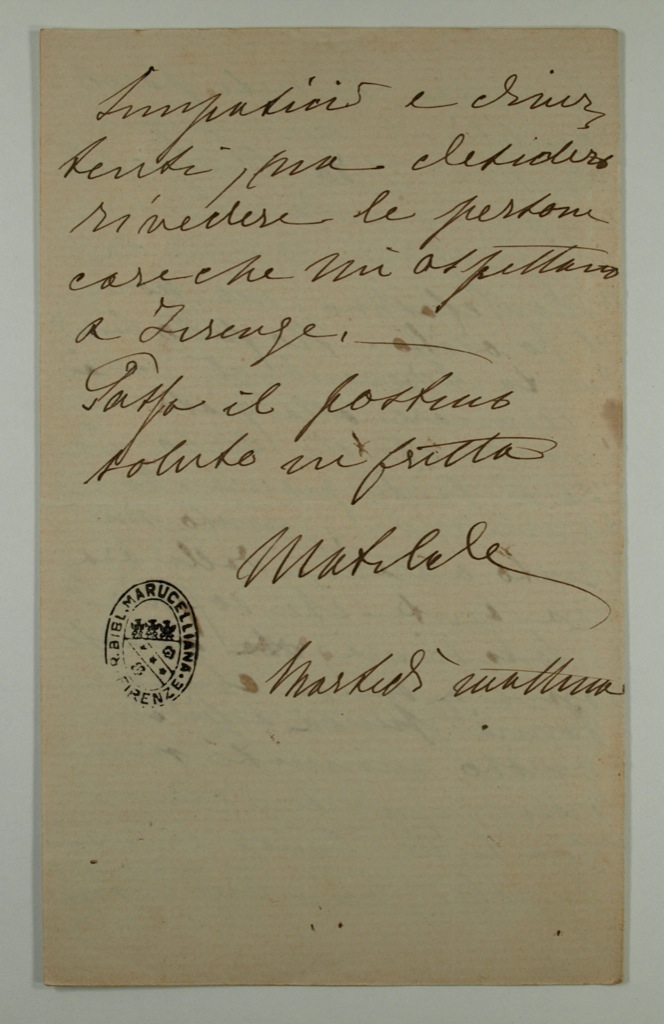 simpatici e diver-
tenti, ma desidero
rivedere le persone
care che mi aspettano
a Firenze. —
Passa il postino
saluto in fretta
Matilde
R. BIBL. MARUCELLIANA • FIRENZE
Martedì mattina